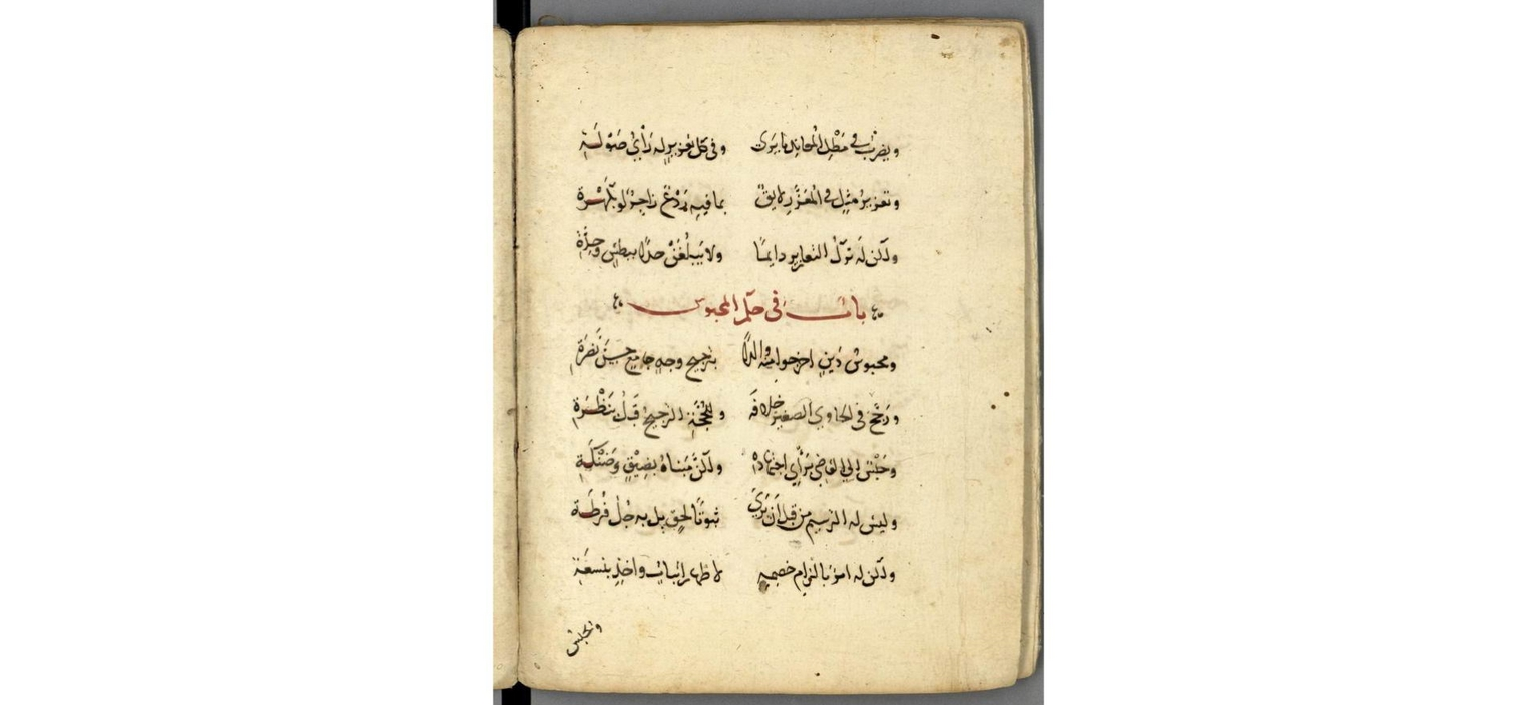 ويضرب في مطل المعاند ما يرى وفي كل تعزير له رأي صولة
وتعزير مثل في المعزر لايق بما فيه ردع زاجر لو
ولكن له ترك التعازير دايما ولا يبلغن حدا ببطش وحدة
باب في حكم المحبوس
ومحبوس دين اخرجوا منه والدا بترجيح وجه جامع حسن نضرة
ورجح في الحاوي الصغير خلافه وللحجة الترجيح قبل بنظرة
وحبس الى القاضي برأي اجتهاده ولكن مبناه بضيق وضنكة
وليس له الترسيم من قبل أن يرى ثبوتا لحق بل به جل فرطة
ولكن له امر بالزام خصمه لاظهار اثبات واخذ بنسعة
ومجلس